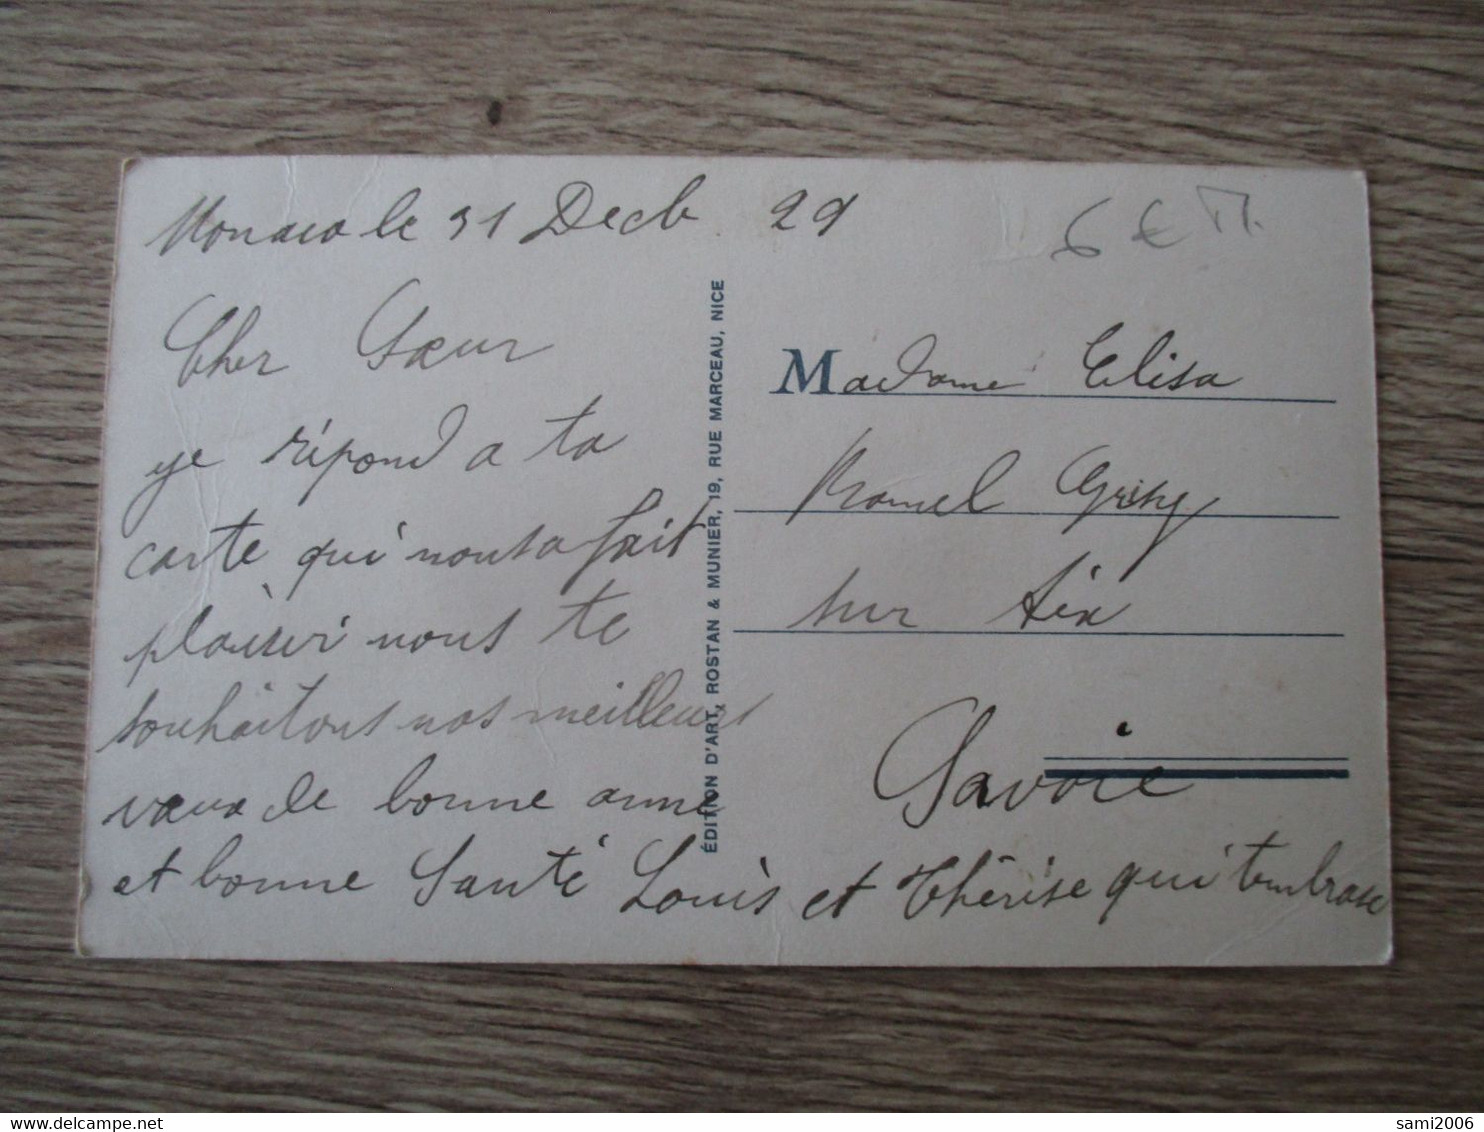 Monaco le 31 Decb 29
6 €
Cher Sœur
je répond a ta
carte qui nousa fait
plaisir nous te
souhaitons nos meilleurs
vœux de bonne anné
et bonne Santé Louis et Thérèse qui t'embrase
ÉDITION D'ART, ROSTAN & MUNIER, 19, RUE MARCEAU, NICE
Madame Elisa
sur Aix
Savoie
delcampe.net
sami2006